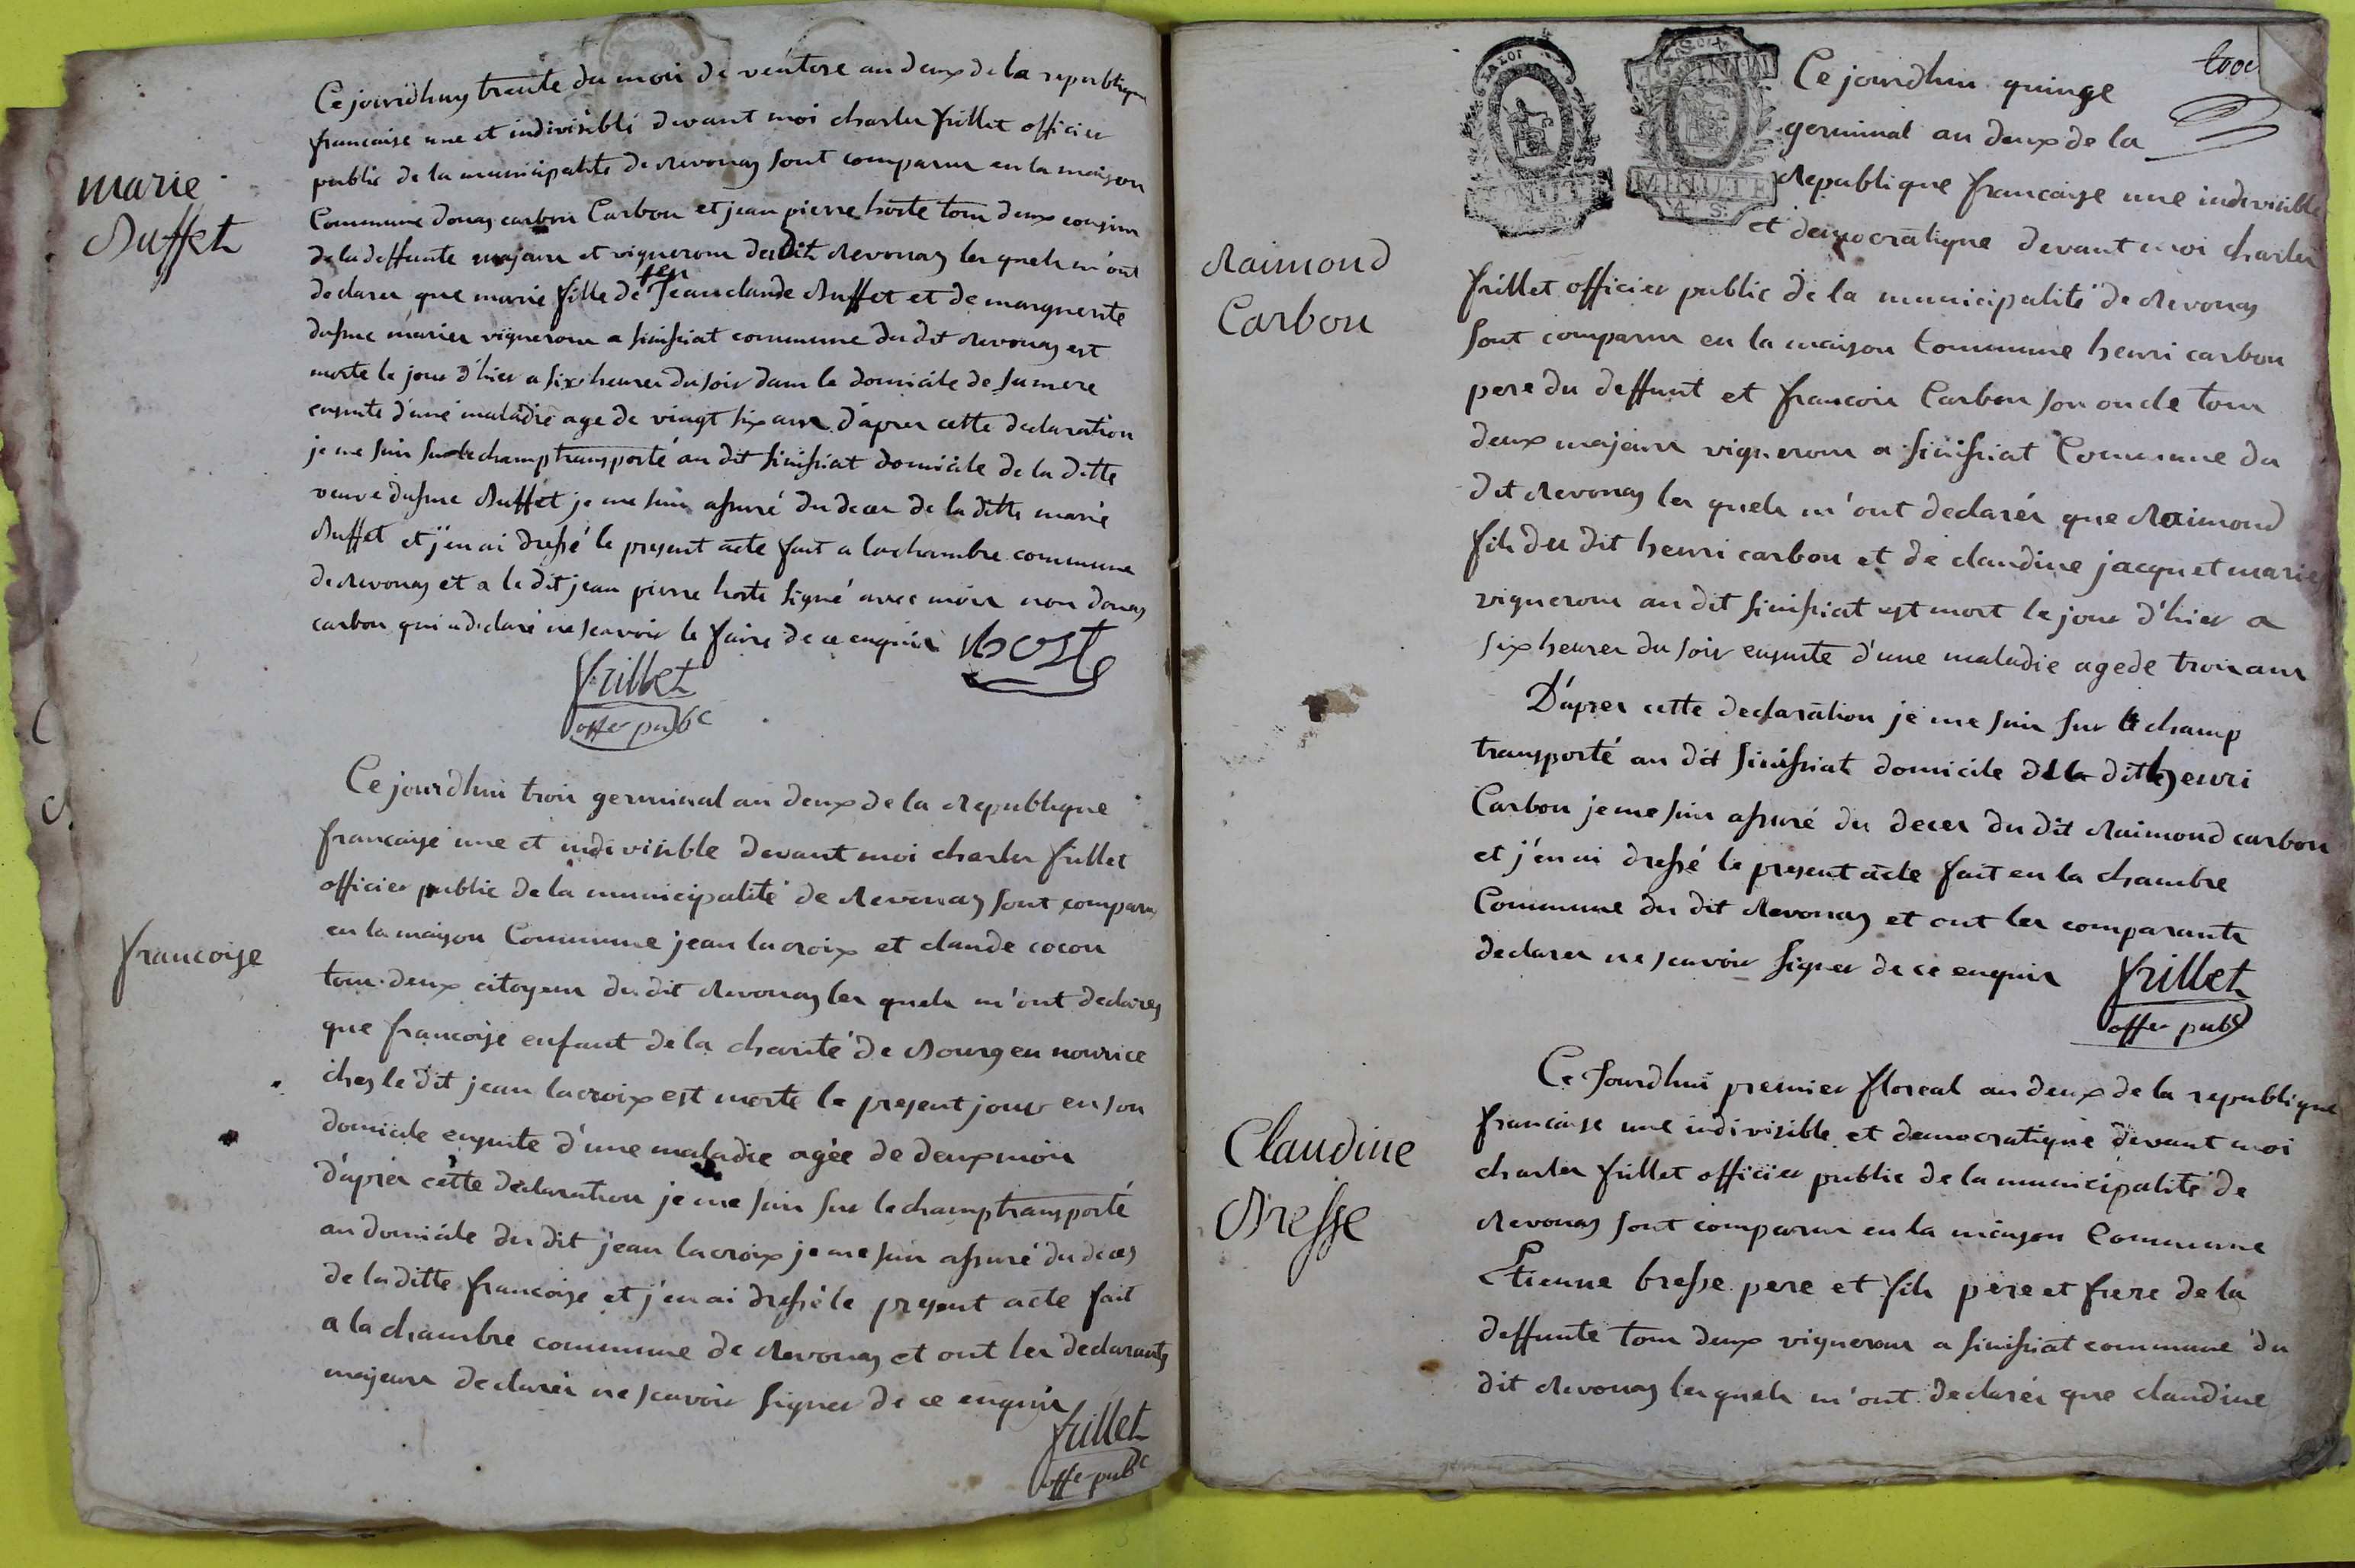 marie
Buffet
Ce jourdhuy trente du mois de ventose an deux de la republique
francaise une et indivisible devant moi charles frillet officier
public de la municipalite de Revonas sont comparus en la maison
Commune donas carbon Carbon et jean pierre hoste tous deux cousins
de la deffunte majeurs et vignerons du dit Revonas les quels m'ont
declarer que marie fille de feu Jean claude Buffet et de marguerite
mariés vignerons a sinissiat commune du dit Revonas est
morte le jour d'hier a six heures du soir dans le domicile de sa mere
ensuite d'une maladie age de vingt six ans d'apres cette declaration
je me suis sur le champ transporté au dit sinissiat domicile de la ditte
veuve Buffet je me suis assuré du deces de la ditte marie
Buffet et j'en ai dressé le present acte fait a la chambre commune
de Revonas et a le dit jean pierre hoste signé avec moi non donas
carbon qui a declaré ne scavoir le faire de ce enquis hoste
frillet
offer pubc
francoise
Ce jourd'hui trois germinal an deux de la Republique
francaise une et indivisible devant moi charles frillet
officier public de la municipalité de Revonas sont comparus
en la maison Commune jean lacroix et claude cocon
tous deux citoyens du dit Revonas les quels m'ont declarés
que francoise enfant de la charité de Bourg en nourice
ches le dit jean lacroix est morte le present jour en son
domicile ensuite d'une maladie agée de deux mois
d'après cette declaration je me suis sur le champ transporté
au domicile du dit jean lacroix je me suis assuré du deces
de la ditte francoise et j'en ai dressé le present acte fait
a la chambre commune de Revonas et ont les declarants
majeurs declarés ne scavoir signer de ce enquis
frillet
offe pubc
MINUTE
MINUTE
Raimond
Carbon
Ce jourdhui quinze
germinal an deux de la
Republique francaise une indivisible
et democratique devant moi charles
frillet officier public de la municipalité de Revonas
sont comparus en la maison Commune henri carbon
pere du deffunt et francois Carbon son oncle tous
deux majeurs vignerons a sinissiat Commune du
dit Revonas les quels m'ont declarés que Raimond
fils du dit henri carbon et de claudine jacquet mariés
vignerons au dit sinissiat est mort le jour d'hier a
six heures du soir ensuite d'une maladie age de trois ans
D'apres cette declaration je me suis sur le champ
transporté au dit sinissiat domicile henri
Carbon je me suis assuré du deces du dit Raimond carbon
et j'en ai dressé le present acte fait en la chambre
Commune du dit Revonas et ont les comparants
declarer ne scavoir signer de ce enquis frillet
offer pubc
Claudine
Bresse
Ce Jourdhui premier floreal an deux de la republique
francaise une indivisible et democratique devant moi
charles frillet officier public de la municipalité de
Revonas sont comparus en la maison Commune
Etienne bresse pere et fils père et frere de la
deffunte tous deux vignerons a sinissiat commune du
dit Revonas les quels m'ont declarés que claudine